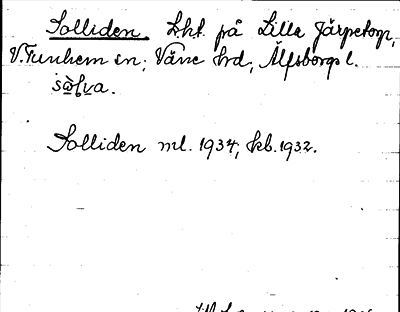 Solliden. Lht. på Lilla Järpetorp,
V. Tunhem sn; Väne hd, Älfsborgs l.
sòl̥va.
Solliden ml. 1934, kb. 1932.